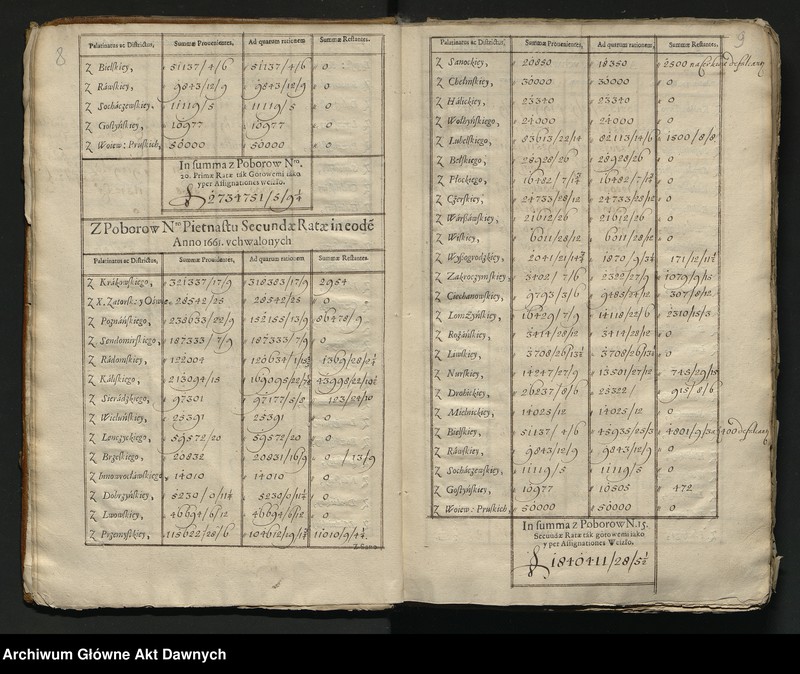 8
Palatinatus ac Districtus, Summæ Prouenientes, Ad quarum rationem Summæ Restantes.
Z Bielskiey, 51137/4/6 51137/4/6 0
Z Ráwskiey, 9843/12/9 9843/12/9 0
Z Socháczewskiey, 11119/5 11119/5 0
Z Gostyńskiey, 10977 10977 0
Z Woiew: Pruskich, 50000 50000 0
In summa z Poborow Nro.
20. Primæ Ratæ ták Gotowemi iáko
y per Assignationes weszło.
2734751/5/9½
Z Poborow Nro Pietnastu Secundæ Ratæ in eodē
Anno 1661. vchwalonych
Palatinatus ac Districtus, Summæ Prouenientes, Ad quarum rationem Summæ Restantes
Z Krákowskiego, 321337/17/9 318383/17/9 2954
Z X. Zatorsk: y Oświe 28542/25 28542/25 0
Z Poznáńskiego, 238633/22/9 152155/13/9 86478/9
Z Sendomirskiego, 187333/7/9 187333/7/9 0
Z Rádomskiey, 122004
Z Káliskiego, 213094/15
Z Sierádzkiego, 97301 97177/5/8 123/24/10
Z Wieluńskiey, 25391 25391 0
Z Lenczyckiego, 59572/20 59572/20 0
Z Brzeskiego, 20832 20831/16/9 0/13/9
Z Innowrocłáwskiego, 14010 14010 0
Z Dobrzyńskiey, 5230/0/11¼ 5230/0/11¼ 0
Z Lwowskiey, 46694/6/12 46694/6/12 0
Z Przemyskiey, 115622/28/6
Z Sano-
9
Palatinatus ac Districtus, Summæ Prouenientes, Ad quarum rationem, Summæ Restantes.
Z Sanockiey, 20850 18350 2500
Z Chełmskiey, 30000 30000 0
Z Hálickiey, 23340 23340 0
Z Wołhyńskiego, 24000 24000 0
Z Lubelskiego, 83613/22/14 82113/14/6 1500/8/8
Z Bełskiego, 28928/26 28928/26 0
Z Płockiego, 0
Z Czerskiey, 24733/28/12 24733/28/12 0
Z Wárszáwskiey, 21612/26 21612/26 0
Z Wiskiey, 6011/28/12 6011/28/12 0
Z Wyszogrodzkiey,
Z Zakroczymskiey, 3402/7/6 2322/27/9 1079/9/15
Z Ciechanowskiey, 9793/3/6 9485/24/12 307/8/12
Z Lomżyńskiey, 16429/7/9 14118/22/6 2310/15/3
Z Rożáńskiey, 3414/28/12 3414/28/12 0
Z Liwskiey, 0
Z Nurskiey, 14247/27/9 13501/27/12 745/29/15
Z Drohickiey, 26237/8/6 25322/ 915/8/6
Z Mielnickiey, 14025/12 14025/12 0
Z Bielskiey, 51137/4/6 45935/25/3
Z Ráwskiey, 9843/12/9 9843/12/9 0
Z Socháczewskiey, 11119/5 11119/5 0
Z Gostyńskiey, 10977 10505 472
Z Woiew: Pruskich, 50000 50000 0
In summa z Poborow N. 15.
Secundæ Ratæ ták gotowemi iáko
y per Assignationes Weszło.
1840411/28/5½
Archiwum Główne Akt Dawnych